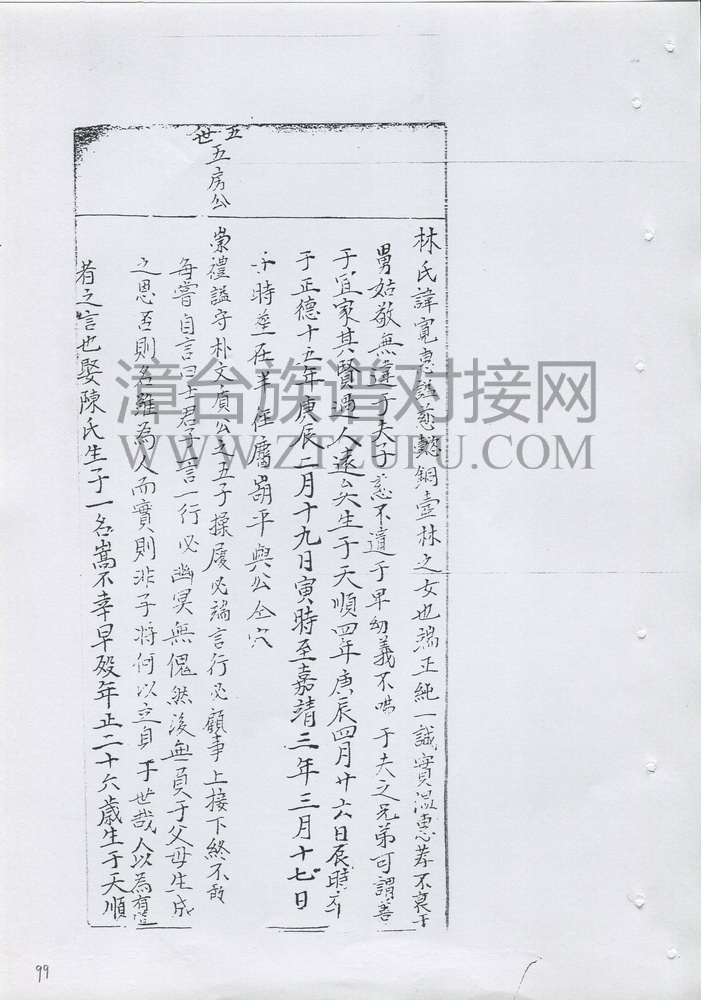 五世
五房公
林氏諱寬惠謚慈懿銅壺林之女也端正純一誠實溫惠孝不衰于
舅姑敬無違于夫子慈不遺于卑幼義不咈于夫之兄弟可謂善
于宜家其賢過人遠矣生于天順四年庚辰四月廿六日辰時卒
于正德十五年庚辰二月十九日寅時至嘉靖三年三月十七日
時塟在半 平與公仝穴
崇禮謚守朴文質公之五子操履必端言行必顧事上接下終不敢
每嘗自言曰士君子一言一行必幽冥無愧然後無負于父母生成
之恩否則名雖為人而實則非子將何以立身于世哉人以為有道
者之言也娶陳氏生子一名嵩不幸早歿年止二十六歲生于天順
漳台族谱对接网
WWW.ZTZUPU.COM
99